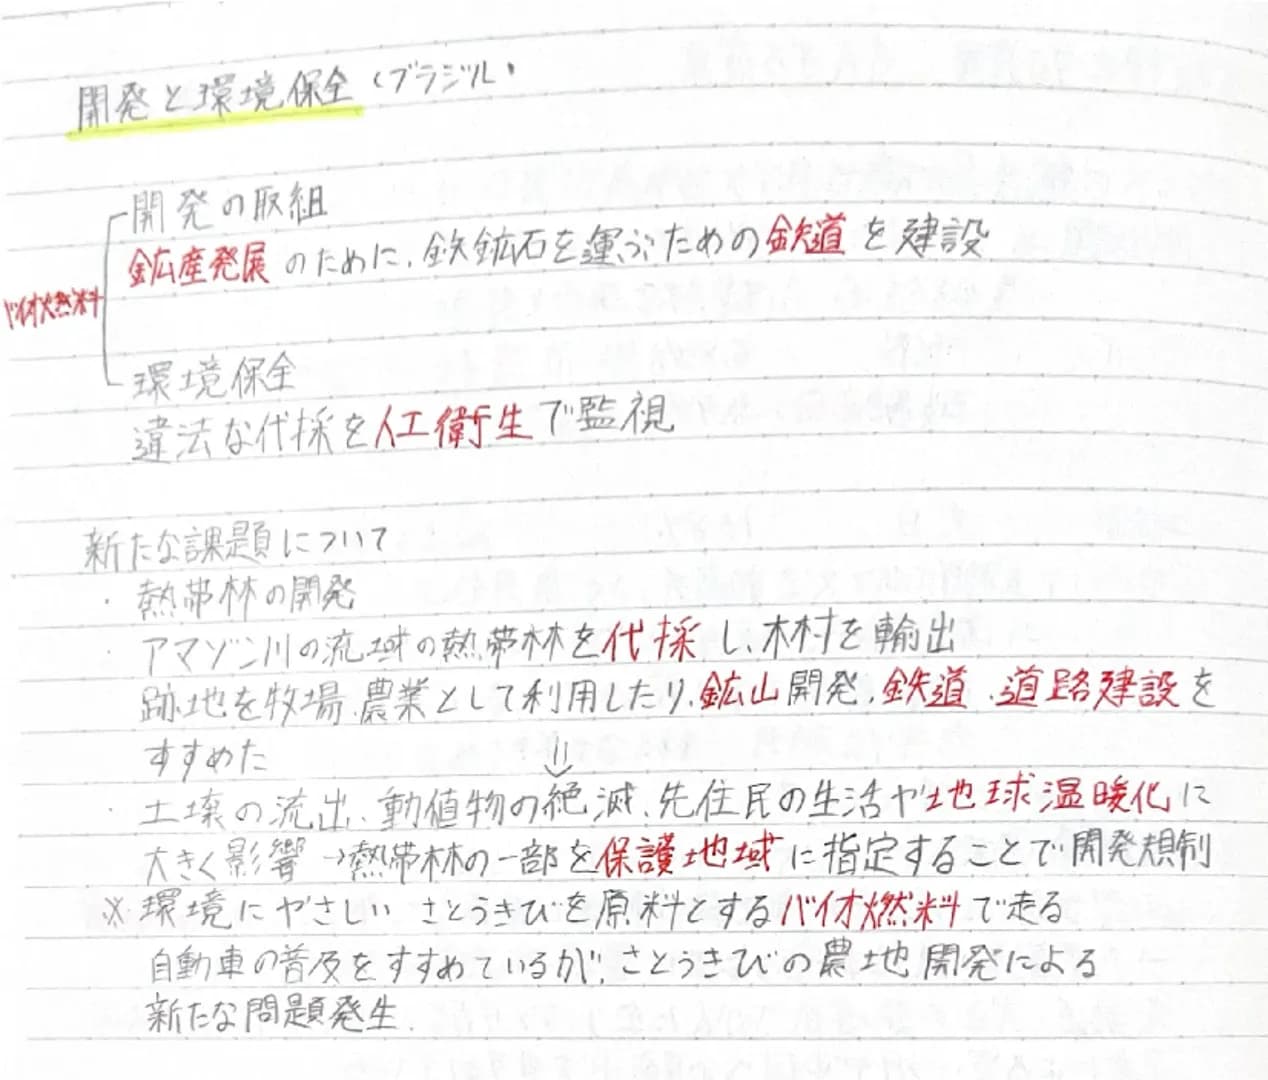 開発と環境保全(ブラジル)
開発の取組
鉱産発展のために、鉄鉱石を運ぶための鉄道を建設
バイオ燃料
環境保全
違法な代採を人工衛生で監視
新たな課題について
・熱帯林の開発
・アマゾン川の流域の熱帯林を代採し、木材を輸出
跡地を牧場、農業として利用したり、鉱山開発、鉄道、道路建設を
すすめた
⇓
・土壌の流出、動値物の絶滅、先住民の生活や地球温暖化に
大きく影響→熱帯林の一部を保護地域に指定することで開発規制
※環境にやさしい さとうきびを原料とするバイオ燃料で走る
自動車の普及をすすめているが、さとうきびの農地開発による
新たな問題発生.